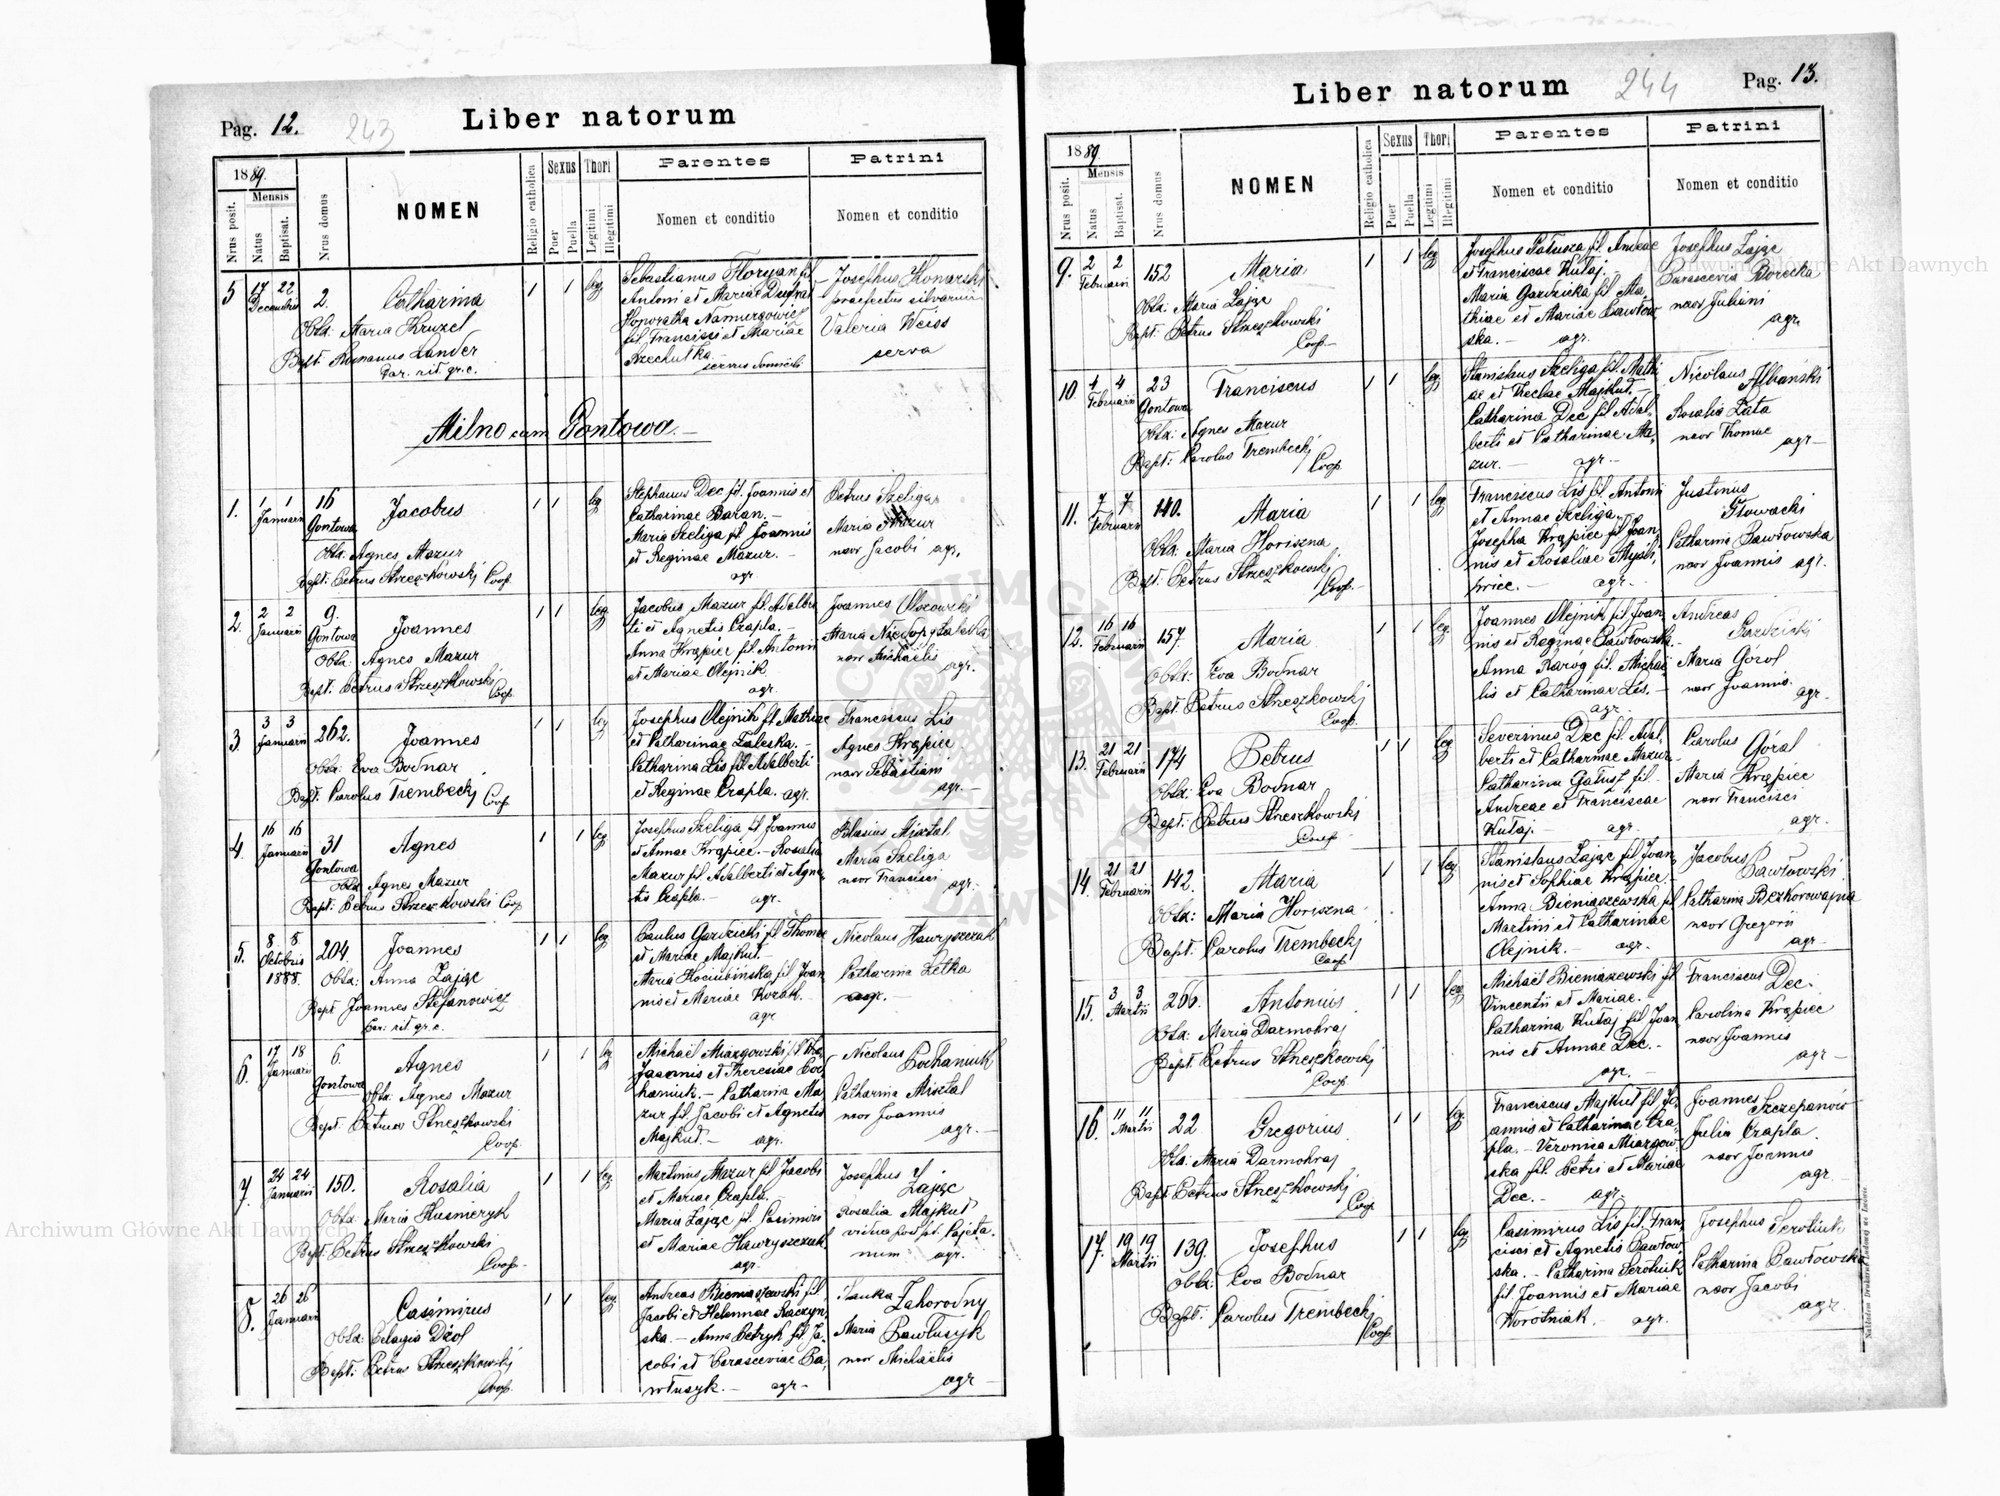 Pag. 12.
243
Liber natorum
1889.
Mensis
Nrus posit.
Natus
Baptisat.
Nrus domus
NOMEN
Religio catholica
Sexus
Puer
Puella
Thori
Legitimi
Illegitimi
Parentes
Nomen et conditio
Patrini
Nomen et conditio
5 17 22 Decembris 2. Catharina 1 1 leg
Obst: Maria Kruzel
Bapt: Romanus Lander
Par. rit. gr. c.
Sebastianus Floryan fil
Antoni et Mariae
Honoratha
fil Francisci et Mariae
Brzechutka
servus
Josephus Konarski
praefectus silvarum
Valeria Weiss
serva
Milno cum Gontowa.
1. 1 1 Januarii 16 Gontowa Jacobus 1 1 leg
Obst: Agnes Mazur
Bapt: Petrus Streszkowski Coop
Stephanus Dec fil. Joannis et
Catharinae Baran.
Maria Szeliga fil Joannis
et Reginae Mazur.
agr
Petrus Szeliga
Maria Mazur
uxor Jacobi agr.
2. 2 2 Januarii 9. Gontowa Joannes 1 1 leg
Obst: Agnes Mazur
Bapt: Petrus Streszkowski
Coop
Jacobus Mazur fil. Adalber
ti et Agnetis Czapla.
Anna Krąpiec fil Antonii
et Mariae Olejnik
agr.
Joannes
Maria
uxor Michaelis
agr.
3. 3 3 Januarii 262. Joannes 1 1 leg
Obst: Eva Bodnar
Bapt: Carolus Trembecki Coop
Josephus Olejnik fil Mathiae
et Catharinae Zaleska.
Catharina Lis fil Adalberti
et Reginae Czapla. agr.
Franciscus Lis
Agnes Krąpiec
uxor Sebastiani
agr.
4. 16 16 Januarii 31 Gontowa Agnes 1 1 leg
Obst: Agnes Mazur
Bapt: Petrus Streszkowski Coop
Josephus Szeliga fil Joannis
et Annae Krąpiec. Rosalia
Mazur fil Adalberti et Agne
tis Czapla. agr.
Blasius Misztal
Maria Szeliga
uxor Francisci
agr.
5. 8 8 Octobris 1888. 204. Joannes 1 1 leg
Obst: Anna Zając
Bapt Joannes Stefanowicz
Par. rit gr. c.
Paulus Gardzicki fil Thomae
et Mariae Majkut.
Maria fil Joan
nis et Mariae Kozak.
agr
Nicolaus Hawryszczak
Catharina Letka
agr.
6. 17 18 Januarii 6. Gontowa Agnes 1 1 leg
Obst: Agnes Mazur
Bapt: Petrus Streszkowski
Coop
Michaël Miazgowski
Joannis et Theresiae Boc
haniuk. Catharina Ma
zur fil Jacobi et Agnetis
Majkut. agr.
Nicolaus
Bochaniuk
Catharina Misztal
uxor Joannis
agr.
7. 24 24 Januarii 150. Rosalia 1 1 leg
Obst: Maria Kusmeryk
Bapt: Petrus Streszkowski
Coop
Martinus Mazur fil Jacobi
et Mariae Czapla.
Maria Zając fil. Casimiri
et Mariae Hawryszczuk
agr.
Josephus
Zając
Rosalia Majkut
vidua post pt. Cajeta
num agr.
8. 26 26 Januarii Casimirus 1 1 leg
Obst: Pelagia
Bapt: Petrus Streszkowski
Coop
Andreas Bieniaszewski fil
Jacobi et Helennae Raczyn
ska. Anna Petryk fil Ja
cobi et Parasceviae Pa
włusyk. agr
Ilauka
Zahorodny
Maria
Pawłusyk
uxor Michaëlis
agr
Liber natorum
244
Pag. 13.
1889.
Mensis
Nrus posit.
Natus
Baptisat.
Nrus domus
NOMEN
Religio catholica
Sexus
Puer
Puella
Thori
Legitimi
Illegitimi
Parentes
Nomen et conditio
Patrini
Nomen et conditio
9. 2 2 Februarii 152 Maria 1 1 leg
Obst: Maria Zając
Bapt: Petrus Streszkowski
Coop
Josephus fil. Andreae
et Franciscae Kutaj.
Maria Gardzicka fil Ma
thiae et Mariae Pawłow
ska. agr.
Josephus Zając
Parascevia Borecka
uxor Juliani
agr.
10. 4 4 Februarii 23 Gontowa Franciscus 1 1 leg
Obst: Agnes Mazur
Bapt: Carolus Trembecki
Coop
Stanislaus Szeliga fil. Mathi
ae et Theclae Majkut.
Catharina Dec fil Adal
berti et Catharinae Ma
zur. agr.
Nicolaus Albański
Rosalia Zata
uxor Thomae
agr
11. 7 7 Februarii 140. Maria 1 1 leg
Obst: Maria Horiszna
Bapt: Petrus Streszkowski
Coop.
Franciscus Lis fil. Antonii
et Annae Szeliga.
Josepha Krąpiec fil Joan
nis et Rosaliae Mysli
wiec. agr.
Justinus
Głowacki
Catharina Pawłowska
uxor Joannis agr.
12. 16 16 Februarii 157. Maria 1 1 leg
Obst: Eva Bodnar
Bapt: Petrus Streszkowski
Coop.
Joannes Olejnik fil Joan
nis et Reginae Pawłowska.
Anna Karog fil. Michaë
lis et Catharinae Lis.
agr.
Andreas
Gardzicki
Maria Górol
uxor Joannis
agr.
13. 21 21 Februarii 174 Petrus 1 1 leg
Obst: Eva Bodnar
Bapt: Petrus Streszkowski
Coop
Severinus Dec fil. Adal
berti et Catharinae Mazur
Catharina fil
Andreae et Franciscae
Kutaj. agr.
Carolus Góral
Maria Krąpiec
uxor Francisci
agr.
14. 21 21 Februarii 142. Maria 1 1 leg
Obst: Maria Horiszna
Bapt: Carolus Trembecki
Coop
Stanislaus Zając fil Joan
nis et Sophiae Krąpiec.
Anna Bieniaszewska fil
Martini et Catharinae
Olejnik. agr.
Jacobus
Pawłowski
Catharina Bezkorowajna
uxor Gregorii
agr
15. 3 3 Martii 266. Antonius 1 1 leg
Obst: Maria Darmohraj
Bapt: Petrus Streszkowski
Coop
Michaël Bieniaszewski fil
Vincentii et Mariae.
Catharina Kutaj fil Joan
nis et Annae Dec.
agr.
Franciscus Dec.
Carolina Krąpiec
uxor Joannis
agr
16. 11 11 Martii 22 Gregorius 1 1 leg
Obst: Maria Darmohraj
Bapt: Petrus Streszkowski
Coop
Franciscus Majkut fil Jo
annis et Catharinae Cza
pla. Veronica Miazgow
ska fil. Petri et Mariae
Dec. agr.
Joannes
Szczepanowi
Julia Czapla
uxor Joannis
agr
17. 19 19 Martii 139. Josephus 1 1 leg
Obst: Eva Bodnar
Bapt: Carolus Trembecki
Coop
Casimirus Lis fil. Fran
cisci et Agnetis Pawłow
ska. Catharina Serotiuk
fil Joannis et Mariae
Worotniak. agr.
Josephus Serotiuk
Catharina Pawłowska
uxor Jacobi
agr.
Archiwum Główne Akt Dawnych
Archiwum Główne Akt Dawnych